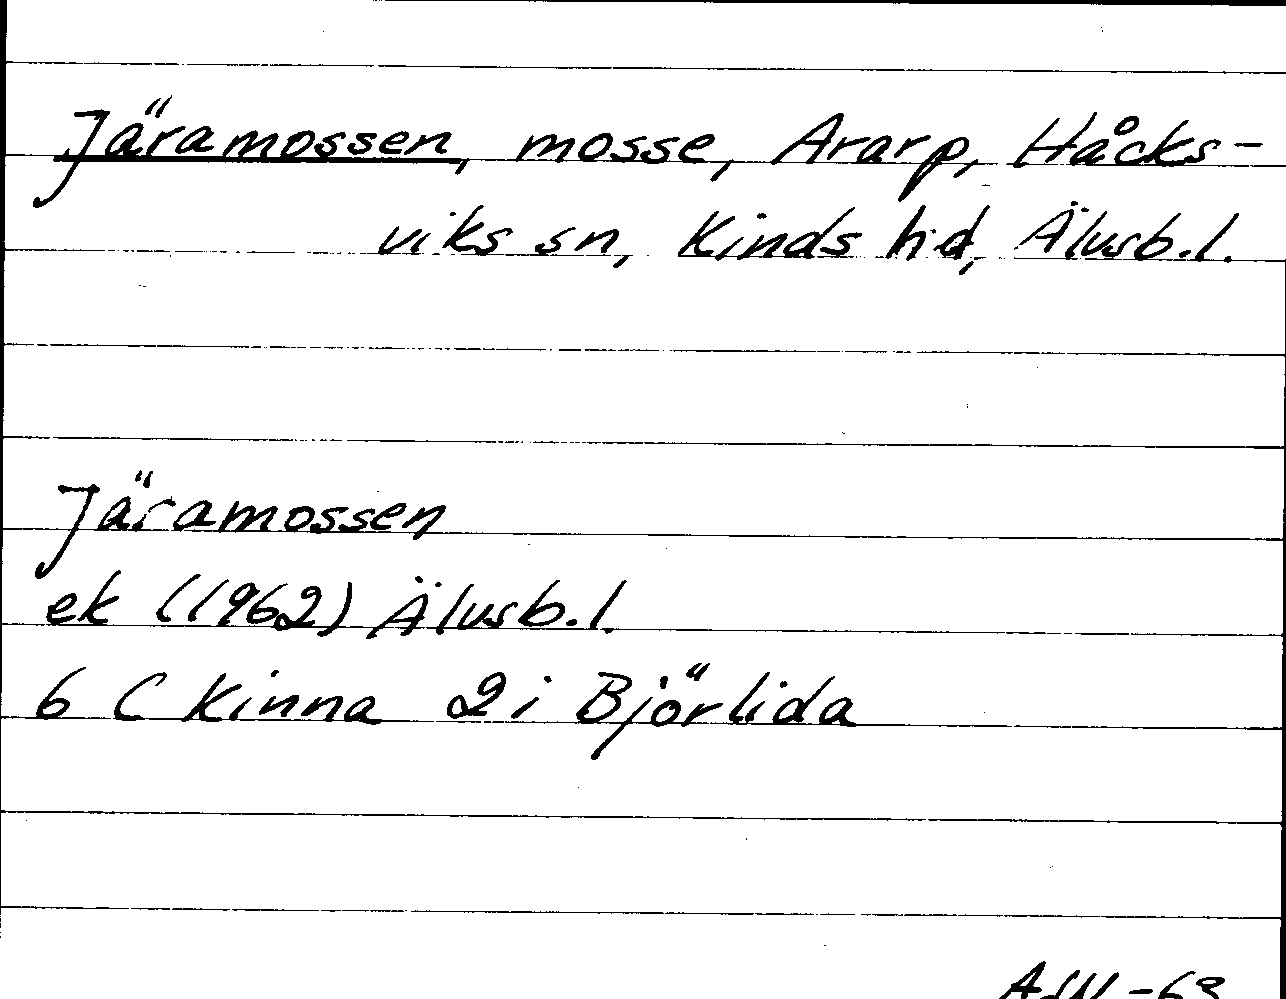 Järamossen, mosse, Ararp, Håcks-
viks sn, Kinds hd, Älvsb.l.
Järamossen
ek (1962) Älvsb.l.
6 C Kinna 2i Björlida